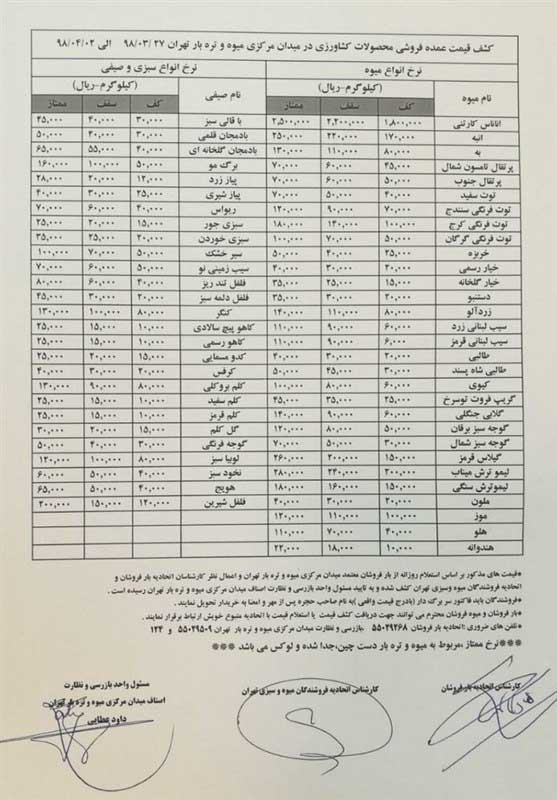 کشف قیمت عمده فروشی محصولات کشاورزی در میدان مرکزی میوه و تره بار تهران ۹۸/۰۳/۲۷ الی ۹۸/۰۴/۰۲
نرخ انواع میوه نرخ انواع سبزی و صیفی
نام میوه (کیلوگرم-ریال) نام صیفی (کیلوگرم-ریال)
کف سقف ممتاز کف سقف ممتاز
اناناس کارتنی ۱,۸۰۰,۰۰۰ ۲,۲۰۰,۰۰۰ ۲,۵۰۰,۰۰۰ با قالی سبز ۳۰,۰۰۰ ۴۰,۰۰۰ ۴۵,۰۰۰
انبه ۱۷۰,۰۰۰ ۲۲۰,۰۰۰ ۲۵۰,۰۰۰ بادمجان قلمی ۳۰,۰۰۰ ۴۰,۰۰۰ ۵۰,۰۰۰
به ۸۰,۰۰۰ ۱۱۰,۰۰۰ ۱۳۰,۰۰۰ بادمجان گلخانه ای ۴۰,۰۰۰ ۵۵,۰۰۰ ۶۵,۰۰۰
پرتقال تامسون شمال ۴۵,۰۰۰ ۶۰,۰۰۰ ۷۰,۰۰۰ برگ مو ۵۰,۰۰۰ ۱۰۰,۰۰۰ ۱۶۰,۰۰۰
پرتقال جنوب ۵۰,۰۰۰ ۶۰,۰۰۰ ۷۰,۰۰۰ پیاز زرد ۱۲,۰۰۰ ۲۰,۰۰۰ ۲۸,۰۰۰
توت سفید ۴۰,۰۰۰ ۵۰,۰۰۰ ۷۰,۰۰۰ پیاز شیری ۲۵,۰۰۰ ۳۰,۰۰۰ ۴۰,۰۰۰
توت فرنگی سنندج ۷۰,۰۰۰ ۹۰,۰۰۰ ۱۲۰,۰۰۰ ریواس ۴۰,۰۰۰ ۶۰,۰۰۰ ۷۰,۰۰۰
توت فرنگی کرج ۱۰۰,۰۰۰ ۱۴۰,۰۰۰ ۱۸۰,۰۰۰ سبزی جور ۱۵,۰۰۰ ۲۰,۰۰۰ ۲۵,۰۰۰
توت فرنگی گرگان ۵۰,۰۰۰ ۷۰,۰۰۰ ۱۰۰,۰۰۰ سبزی خوردن ۲۰,۰۰۰ ۲۵,۰۰۰ ۳۵,۰۰۰
خربزه ۲۵,۰۰۰ ۴۰,۰۰۰ ۵۰,۰۰۰ سیر خشک ۵۰,۰۰۰ ۷۰,۰۰۰ ۱۰۰,۰۰۰
خیار رسمی ۲۰,۰۰۰ ۳۰,۰۰۰ ۴۰,۰۰۰ سیب زمینی نو ۵۰,۰۰۰ ۶۰,۰۰۰ ۷۰,۰۰۰
خیار گلخانه ۱۵,۰۰۰ ۲۵,۰۰۰ ۳۵,۰۰۰ فلفل تند ریز ۴۰,۰۰۰ ۶۰,۰۰۰ ۸۰,۰۰۰
دستنبو ۲۰,۰۰۰ ۳۰,۰۰۰ ۳۵,۰۰۰ فلفل دلمه سبز ۲۰,۰۰۰ ۳۰,۰۰۰ ۴۵,۰۰۰
زردآلو ۸۰,۰۰۰ ۱۱۰,۰۰۰ ۱۴۰,۰۰۰ کنگر ۸۰,۰۰۰ ۱۰۰,۰۰۰ ۱۳۰,۰۰۰
سیب لبنانی زرد ۶۰,۰۰۰ ۹۰,۰۰۰ ۱۱۰,۰۰۰ کاهو پیچ سالادی ۱۰,۰۰۰ ۱۵,۰۰۰ ۲۵,۰۰۰
سیب لبنانی قرمز ۶,۰۰۰ ۹۰,۰۰۰ ۱۱۰,۰۰۰ کاهو رسمی ۱۰,۰۰۰ ۱۵,۰۰۰ ۲۵,۰۰۰
طالبی ۲۰,۰۰۰ ۳۰,۰۰۰ ۴۰,۰۰۰ کدو مسمایی ۱۵,۰۰۰ ۲۰,۰۰۰ ۲۵,۰۰۰
طالبی شاه پسند ۳۰,۰۰۰ ۴۵,۰۰۰ ۵۰,۰۰۰ کرفس ۲۰,۰۰۰ ۳۰,۰۰۰ ۴۰,۰۰۰
کیوی ۶۰,۰۰۰ ۸۰,۰۰۰ ۱۰۰,۰۰۰ کلم بروکلی ۸۰,۰۰۰ ۹۰,۰۰۰ ۱۳۰,۰۰۰
گریپ فروت توسرخ ۲۵,۰۰۰ ۳۵,۰۰۰ ۴۵,۰۰۰ کلم سفید ۱۰,۰۰۰ ۱۵,۰۰۰ ۲۵,۰۰۰
گلابی جنگلی ۶۰,۰۰۰ ۹۰,۰۰۰ ۱۴۰,۰۰۰ کلم قرمز ۱۰,۰۰۰ ۱۵,۰۰۰ ۲۵,۰۰۰
گوجه سبز برقان ۵۰,۰۰۰ ۸۰,۰۰۰ ۱۲۰,۰۰۰ گل کلم ۱۵,۰۰۰ ۲۰,۰۰۰ ۳۰,۰۰۰
گوجه سبز شمال ۳۰,۰۰۰ ۵۰,۰۰۰ ۷۰,۰۰۰ گوجه فرنگی ۳۰,۰۰۰ ۴۰,۰۰۰ ۵۰,۰۰۰
گیلاس قرمز ۱۵۰,۰۰۰ ۲۰۰,۰۰۰ ۲۶۰,۰۰۰ لوبیا سبز ۸۰,۰۰۰ ۱۰۰,۰۰۰ ۱۲۰,۰۰۰
لیمو ترش میناب ۲۰۰,۰۰۰ ۲۴۰,۰۰۰ ۲۸۰,۰۰۰ نخود سبز ۴۰,۰۰۰ ۵۰,۰۰۰ ۶۰,۰۰۰
لیموترش سنگی ۱۵۰,۰۰۰ ۱۶۰,۰۰۰ ۱۸۰,۰۰۰ هویج ۴۰,۰۰۰ ۵۰,۰۰۰ ۶۵,۰۰۰
ملون ۲۰,۰۰۰ ۳۰,۰۰۰ ۴۰,۰۰۰ فلفل شیرین ۱۲۰,۰۰۰ ۱۵۰,۰۰۰ ۲۰۰,۰۰۰
موز ۱۰۰,۰۰۰ ۱۱۰,۰۰۰ ۱۲۰,۰۰۰
هلو ۴۰,۰۰۰ ۷۰,۰۰۰ ۱۱۰,۰۰۰
هندوانه ۱۰,۰۰۰ ۱۸,۰۰۰ ۲۲,۰۰۰
*قیمت های مذکور بر اساس استعلام روزانه از بار فروشان معتمد میدان مرکزی میوه و تره بار تهران و اعمال نظر کارشناسان اتحادیه بار فروشان و
اتحادیه فروشندگان میوه وسبزی تهران کشف شده و به تایید مسئول واحد بازرسی و نظارت اصناف میدان مرکزی میوه و تره بار تهران رسیده است .
*فروشندگان باید فاکتور سر برگ دار (بادرج قیمت واقعی )به نام صاحب حجره پس از مهر و امضا به خریدار تحویل نمایند .
*بار فروشان و میوه فروشان محترم می توانند جهت دریافت کشف قیمت یا استعلام قیمت با اتحادیه متبوع خویش ارتباط برقرار نمایند .
*تلفن های ضروری :اتحادیه بار فروشان ۵۵۰۲۹۲۶۸ ،بازرسی و نظارت میدان مرکزی میوه و تره بار تهران ۵۵۰۲۹۵۰۹ و ۱۲۴
***نرخ ممتاز ،مربوط به میوه و تره بار دست چین،جدا شده و لوکس می باشد ***
کارشناس اتحادیه بار فروشان کارشناس اتحادیه فروشندگان میوه و سبزی تهران مسئول واحد بازرسی و نظارت
اصناف میدان مرکزی میوه و تره بار تهران
داود عطایی